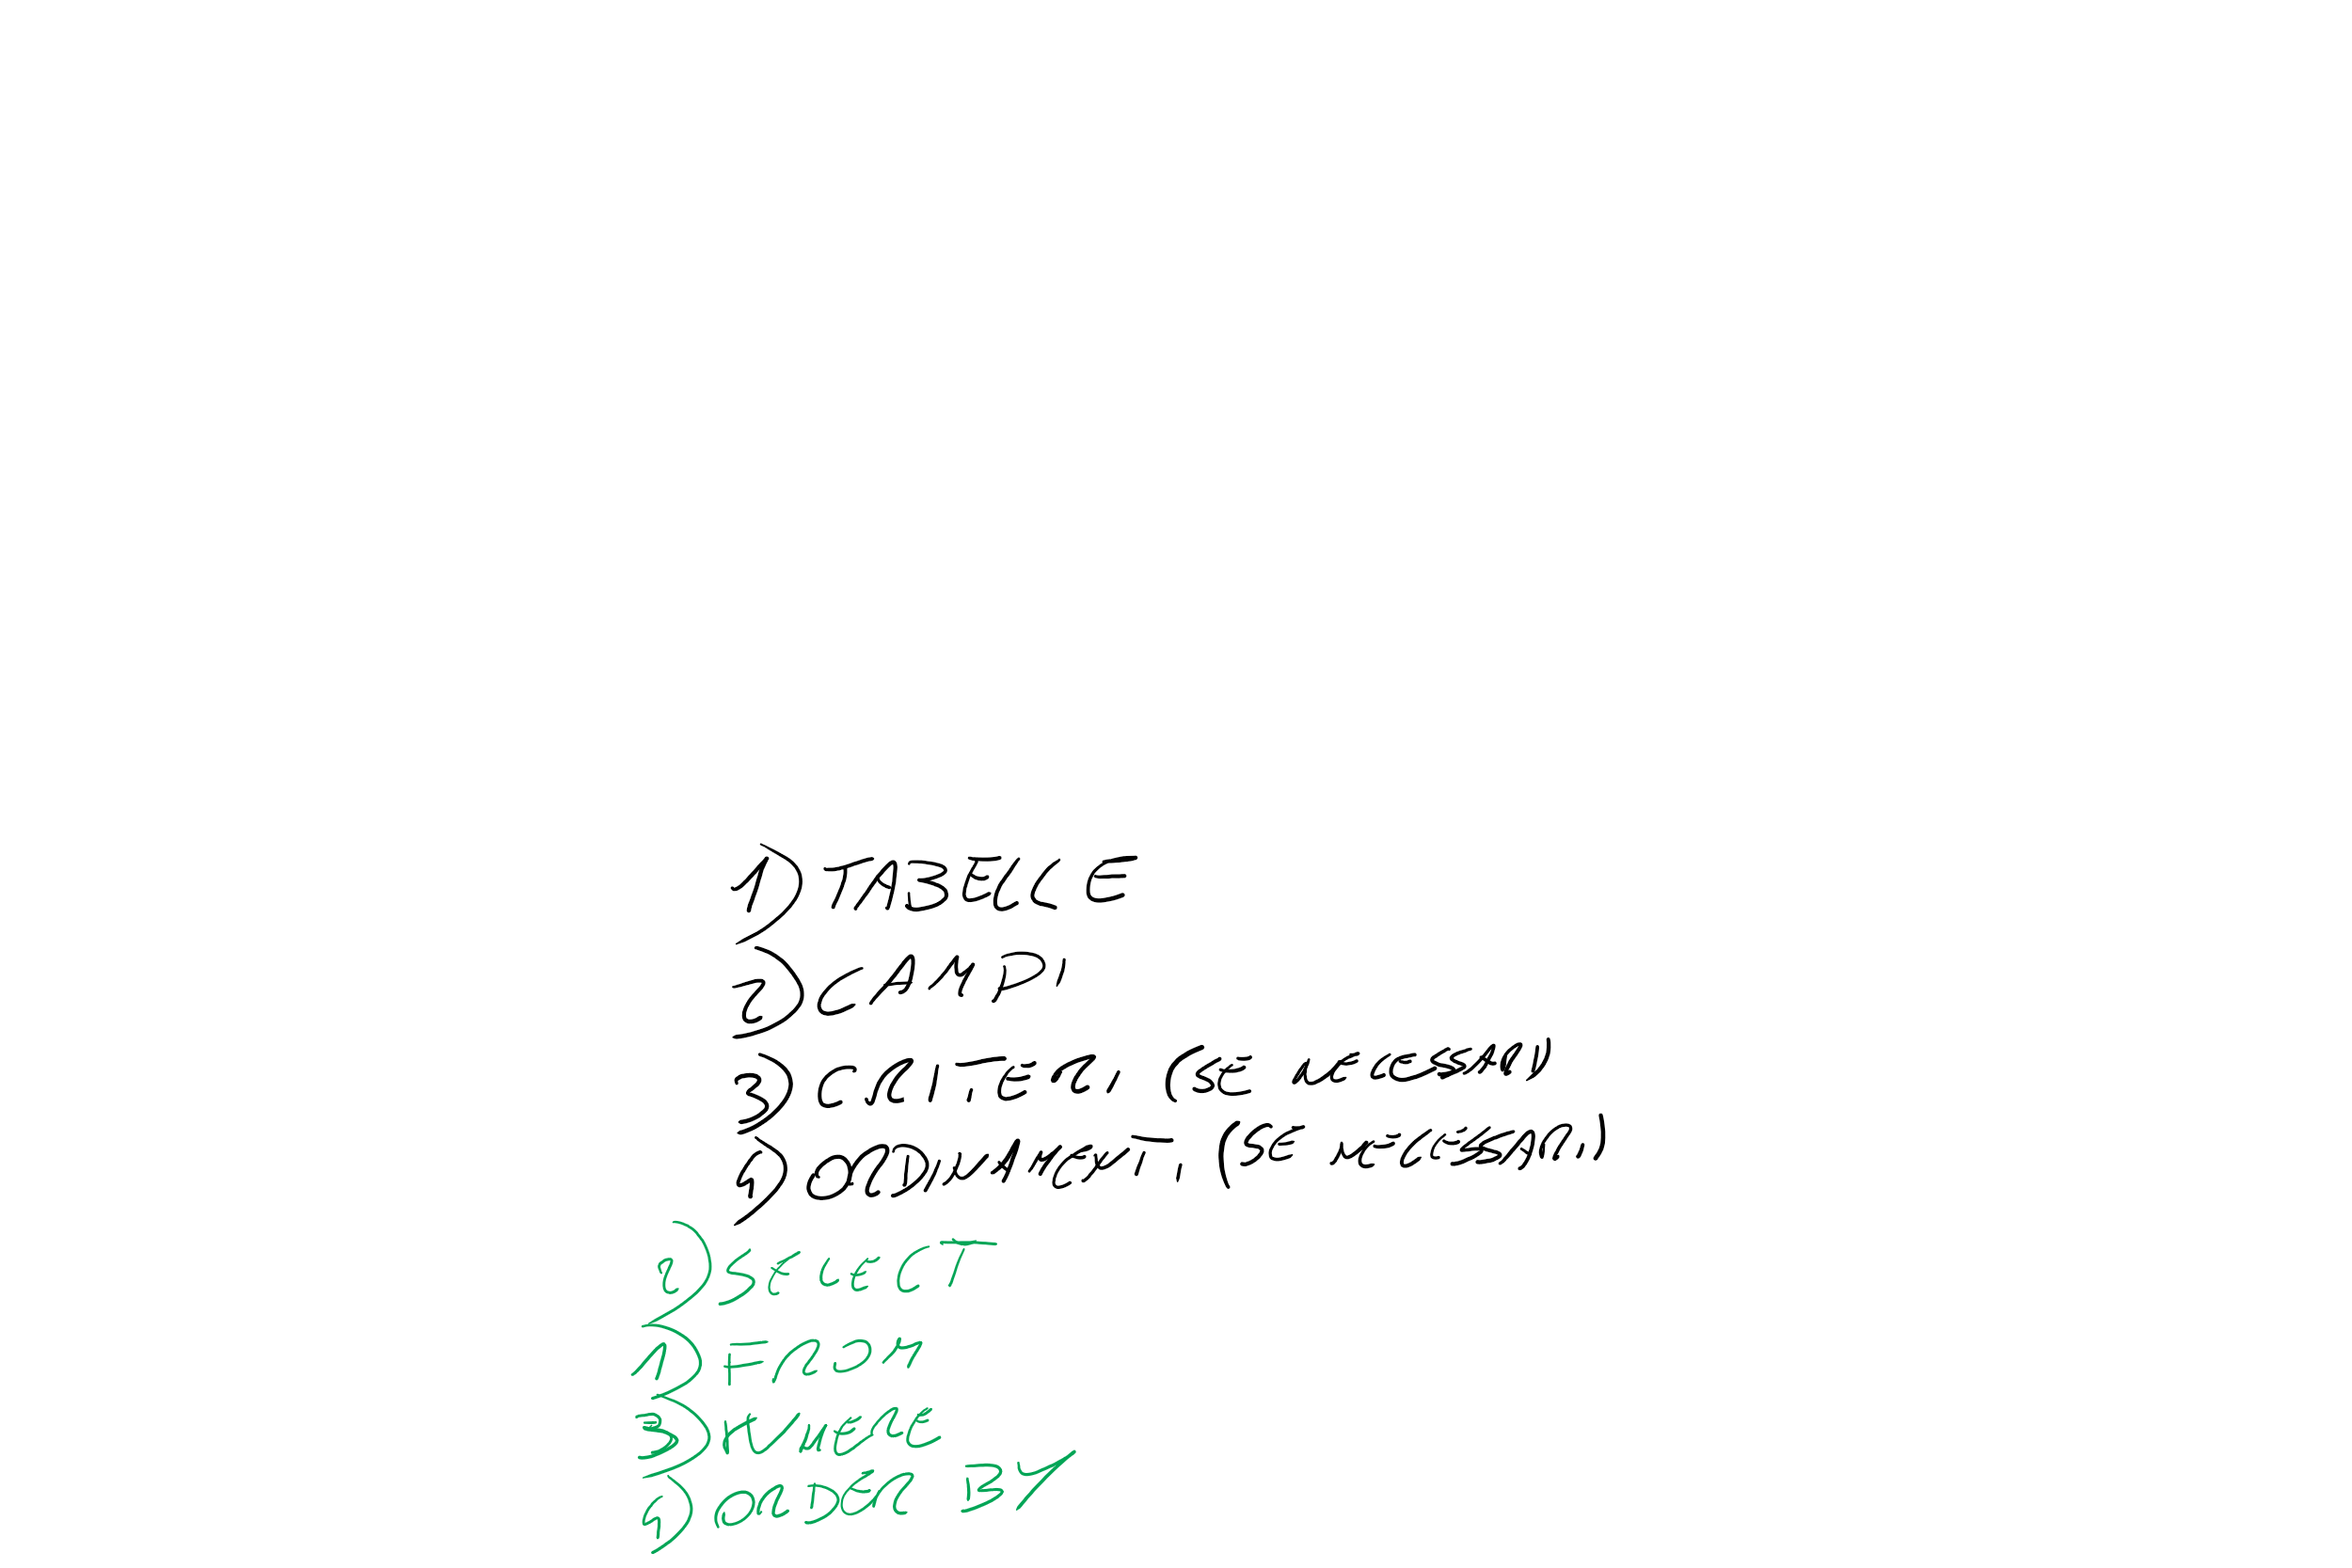 1) TABELLE
2) CAMPI
3) CRITERI (SE NECESSARI)
4) ORDINAMENTI (SE NECESSARI)
2) SELECT
1) FROM
3) WHERE
4) ORDER BY